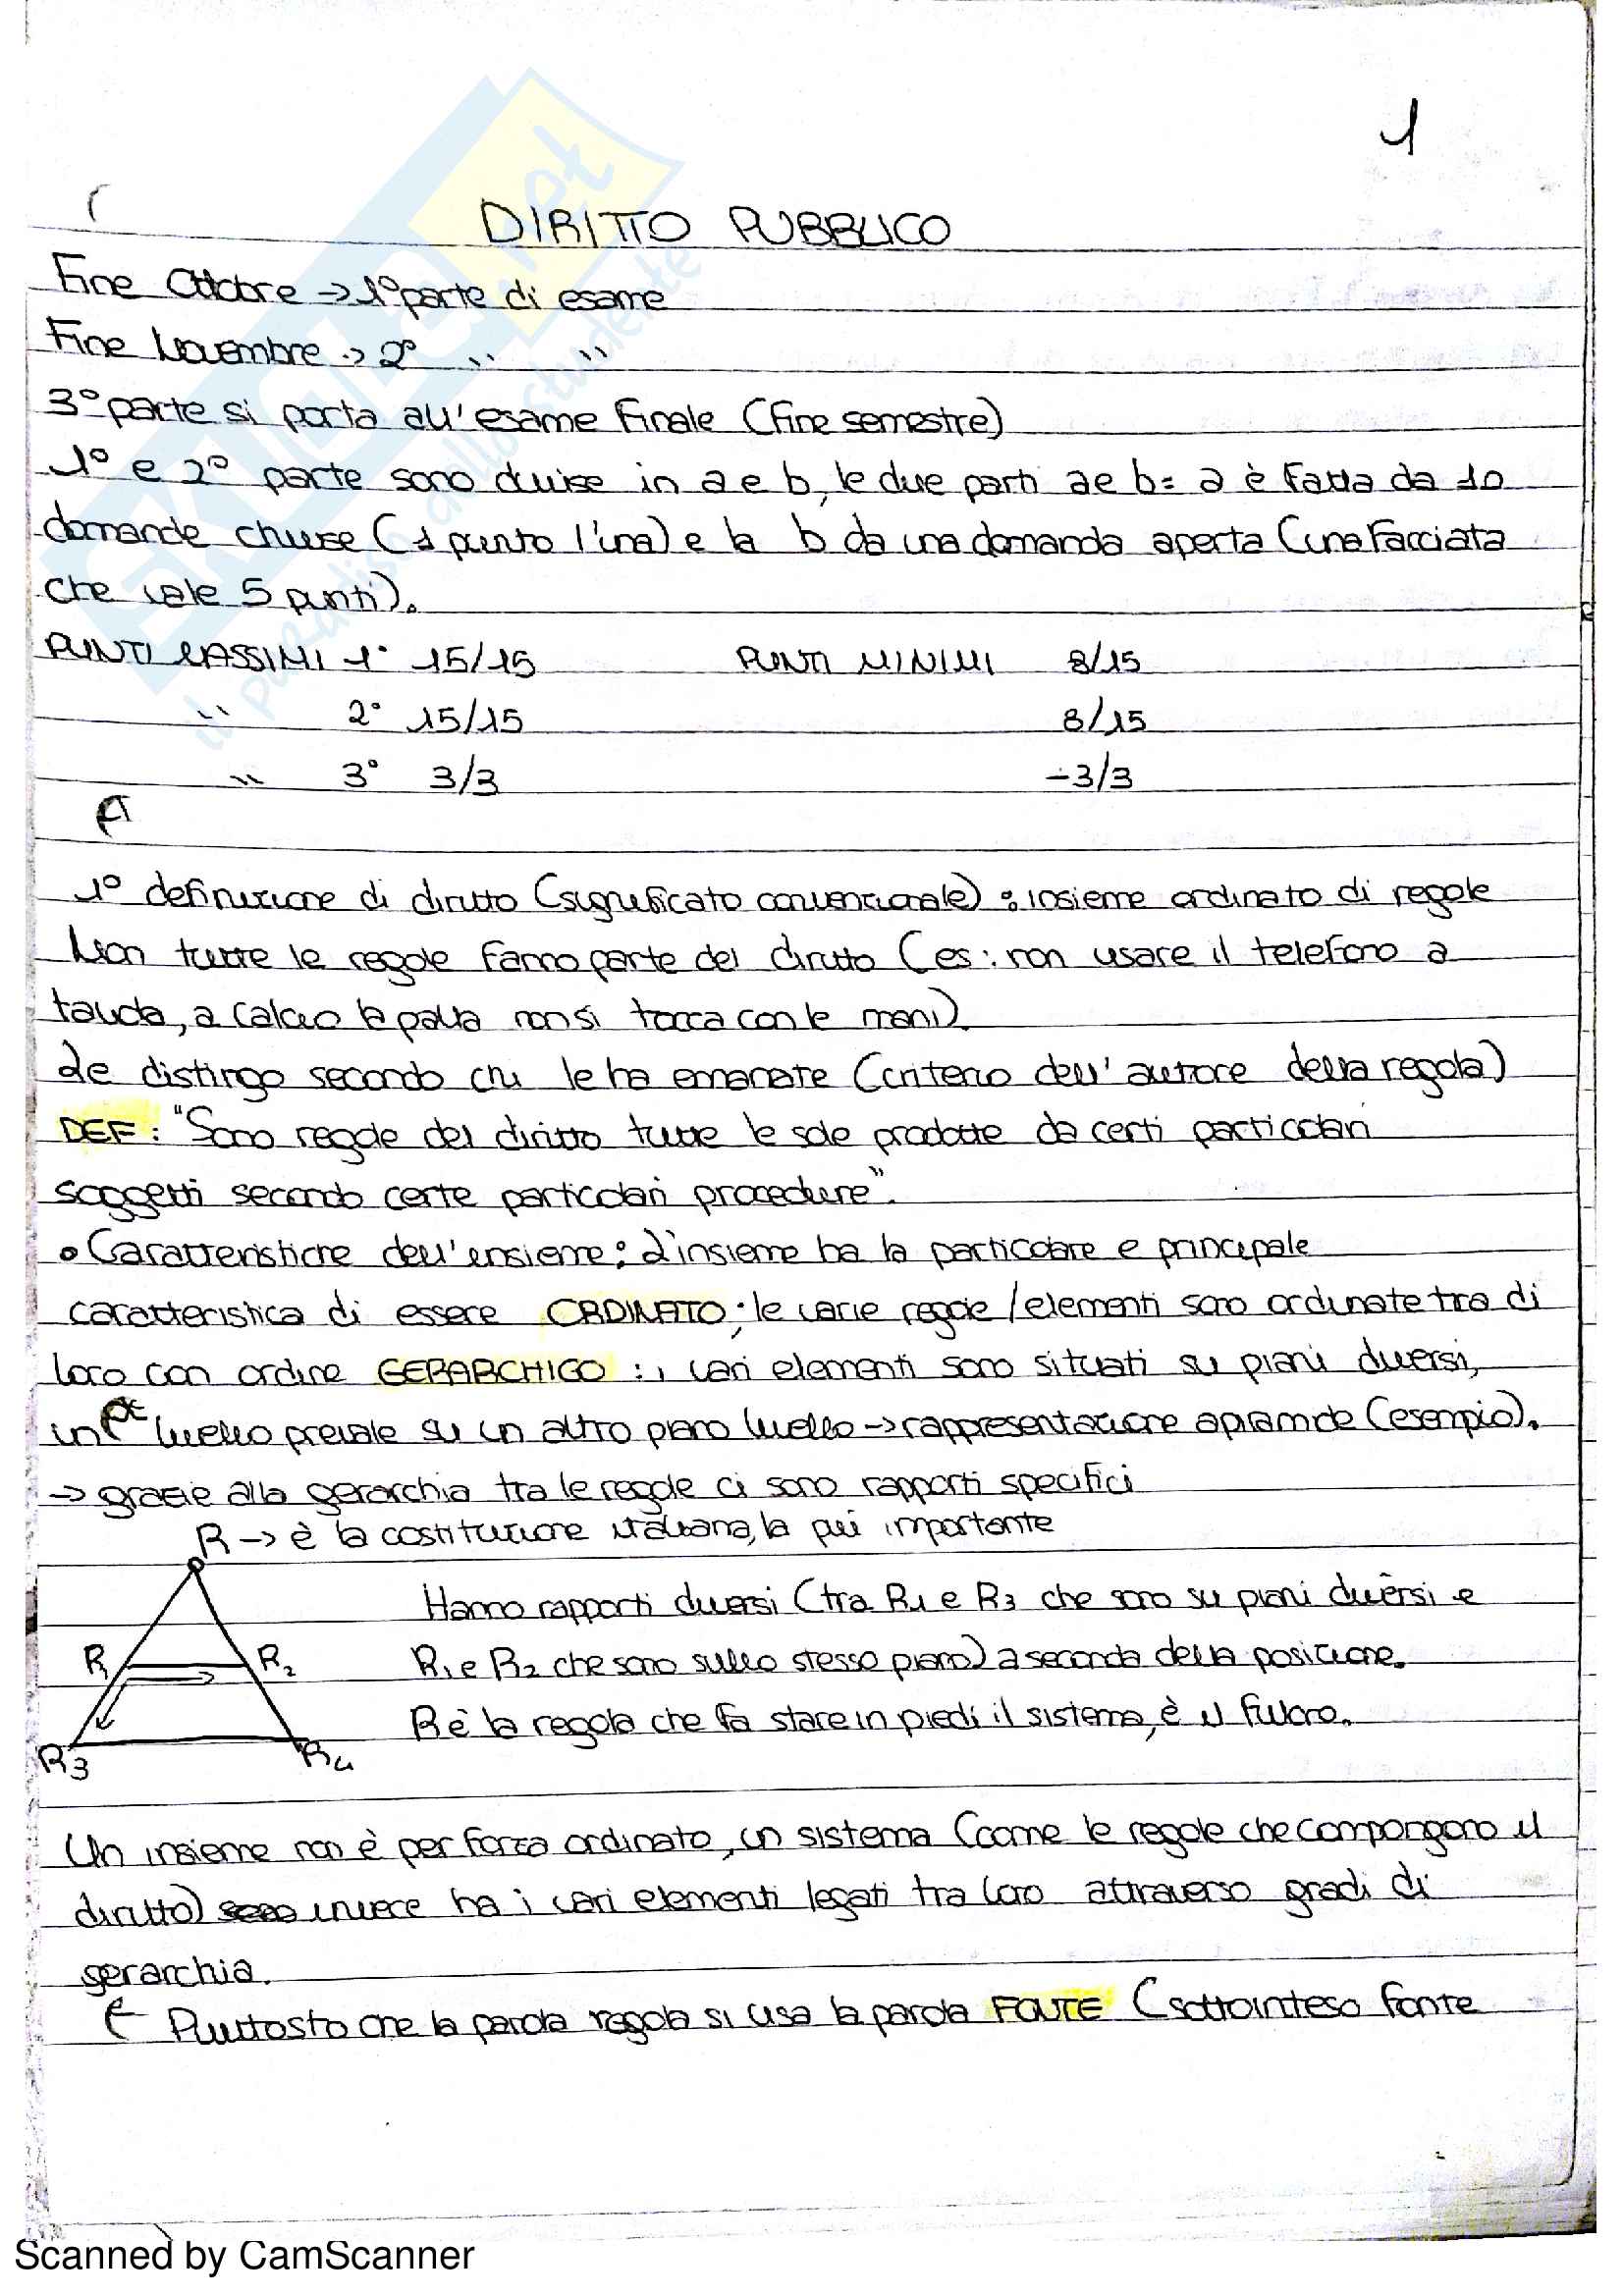 1
DIRITTO PUBBLICO
Fine Ottobre → 1° parte di esame
Fine Novembre → 2° " "
3° parte si porta all'esame finale (fine semestre)
1° e 2° parte sono divise in a e b, le due parti a e b = a è fatta da 10
domande chiuse (1 punto l'una) e la b da una domanda aperta (una facciata
che vale 5 punti).
PUNTI MASSIMI 1° 15/15 PUNTI MINIMI 8/15
" 2° 15/15 8/15
" 3° 3/3 -3/3
1° definizione di diritto (significato convenzionale): insieme ordinato di regole
Non tutte le regole fanno parte del diritto (es: non usare il telefono a
tavola, a calcio la palla non si tocca con le mani).
Le distingo secondo chi le ha emanate (criterio dell'autore della regola)
DEF: "Sono regole del diritto tutte le sole prodotte da certi particolari
soggetti secondo certe particolari procedure".
• Caratteristiche dell'ensieme: L'insieme ha la particolare e principale
caratteristica di essere ORDINATO; le varie regole/elementi sono ordinate tra di
loro con ordine GERARCHICO: i vari elementi sono situati su piani diversi,
un livello prevale su un altro piano livello → rappresentazione a piramide (esempio).
→ grazie alla gerarchia tra le regole ci sono rapporti specifici
R → è la costituzione italiana, la più importante
Hanno rapporti diversi (tra R1 e R3 che sono su piani diversi e
R1 R2 R1 e R2 che sono sullo stesso piano) a seconda della posizione.
R è la regola che fa stare in piedi il sistema, è il fulcro.
R3 R4
Un insieme non è per forza ordinato, un sistema (come le regole che compongono il
diritto) invece ha i vari elementi legati tra loro attraverso gradi di
gerarchia.
Piuttosto che la parola regola si usa la parola FONTE (sottointeso fonte
Scanned by CamScanner
skuola.net
il paradiso dello studente